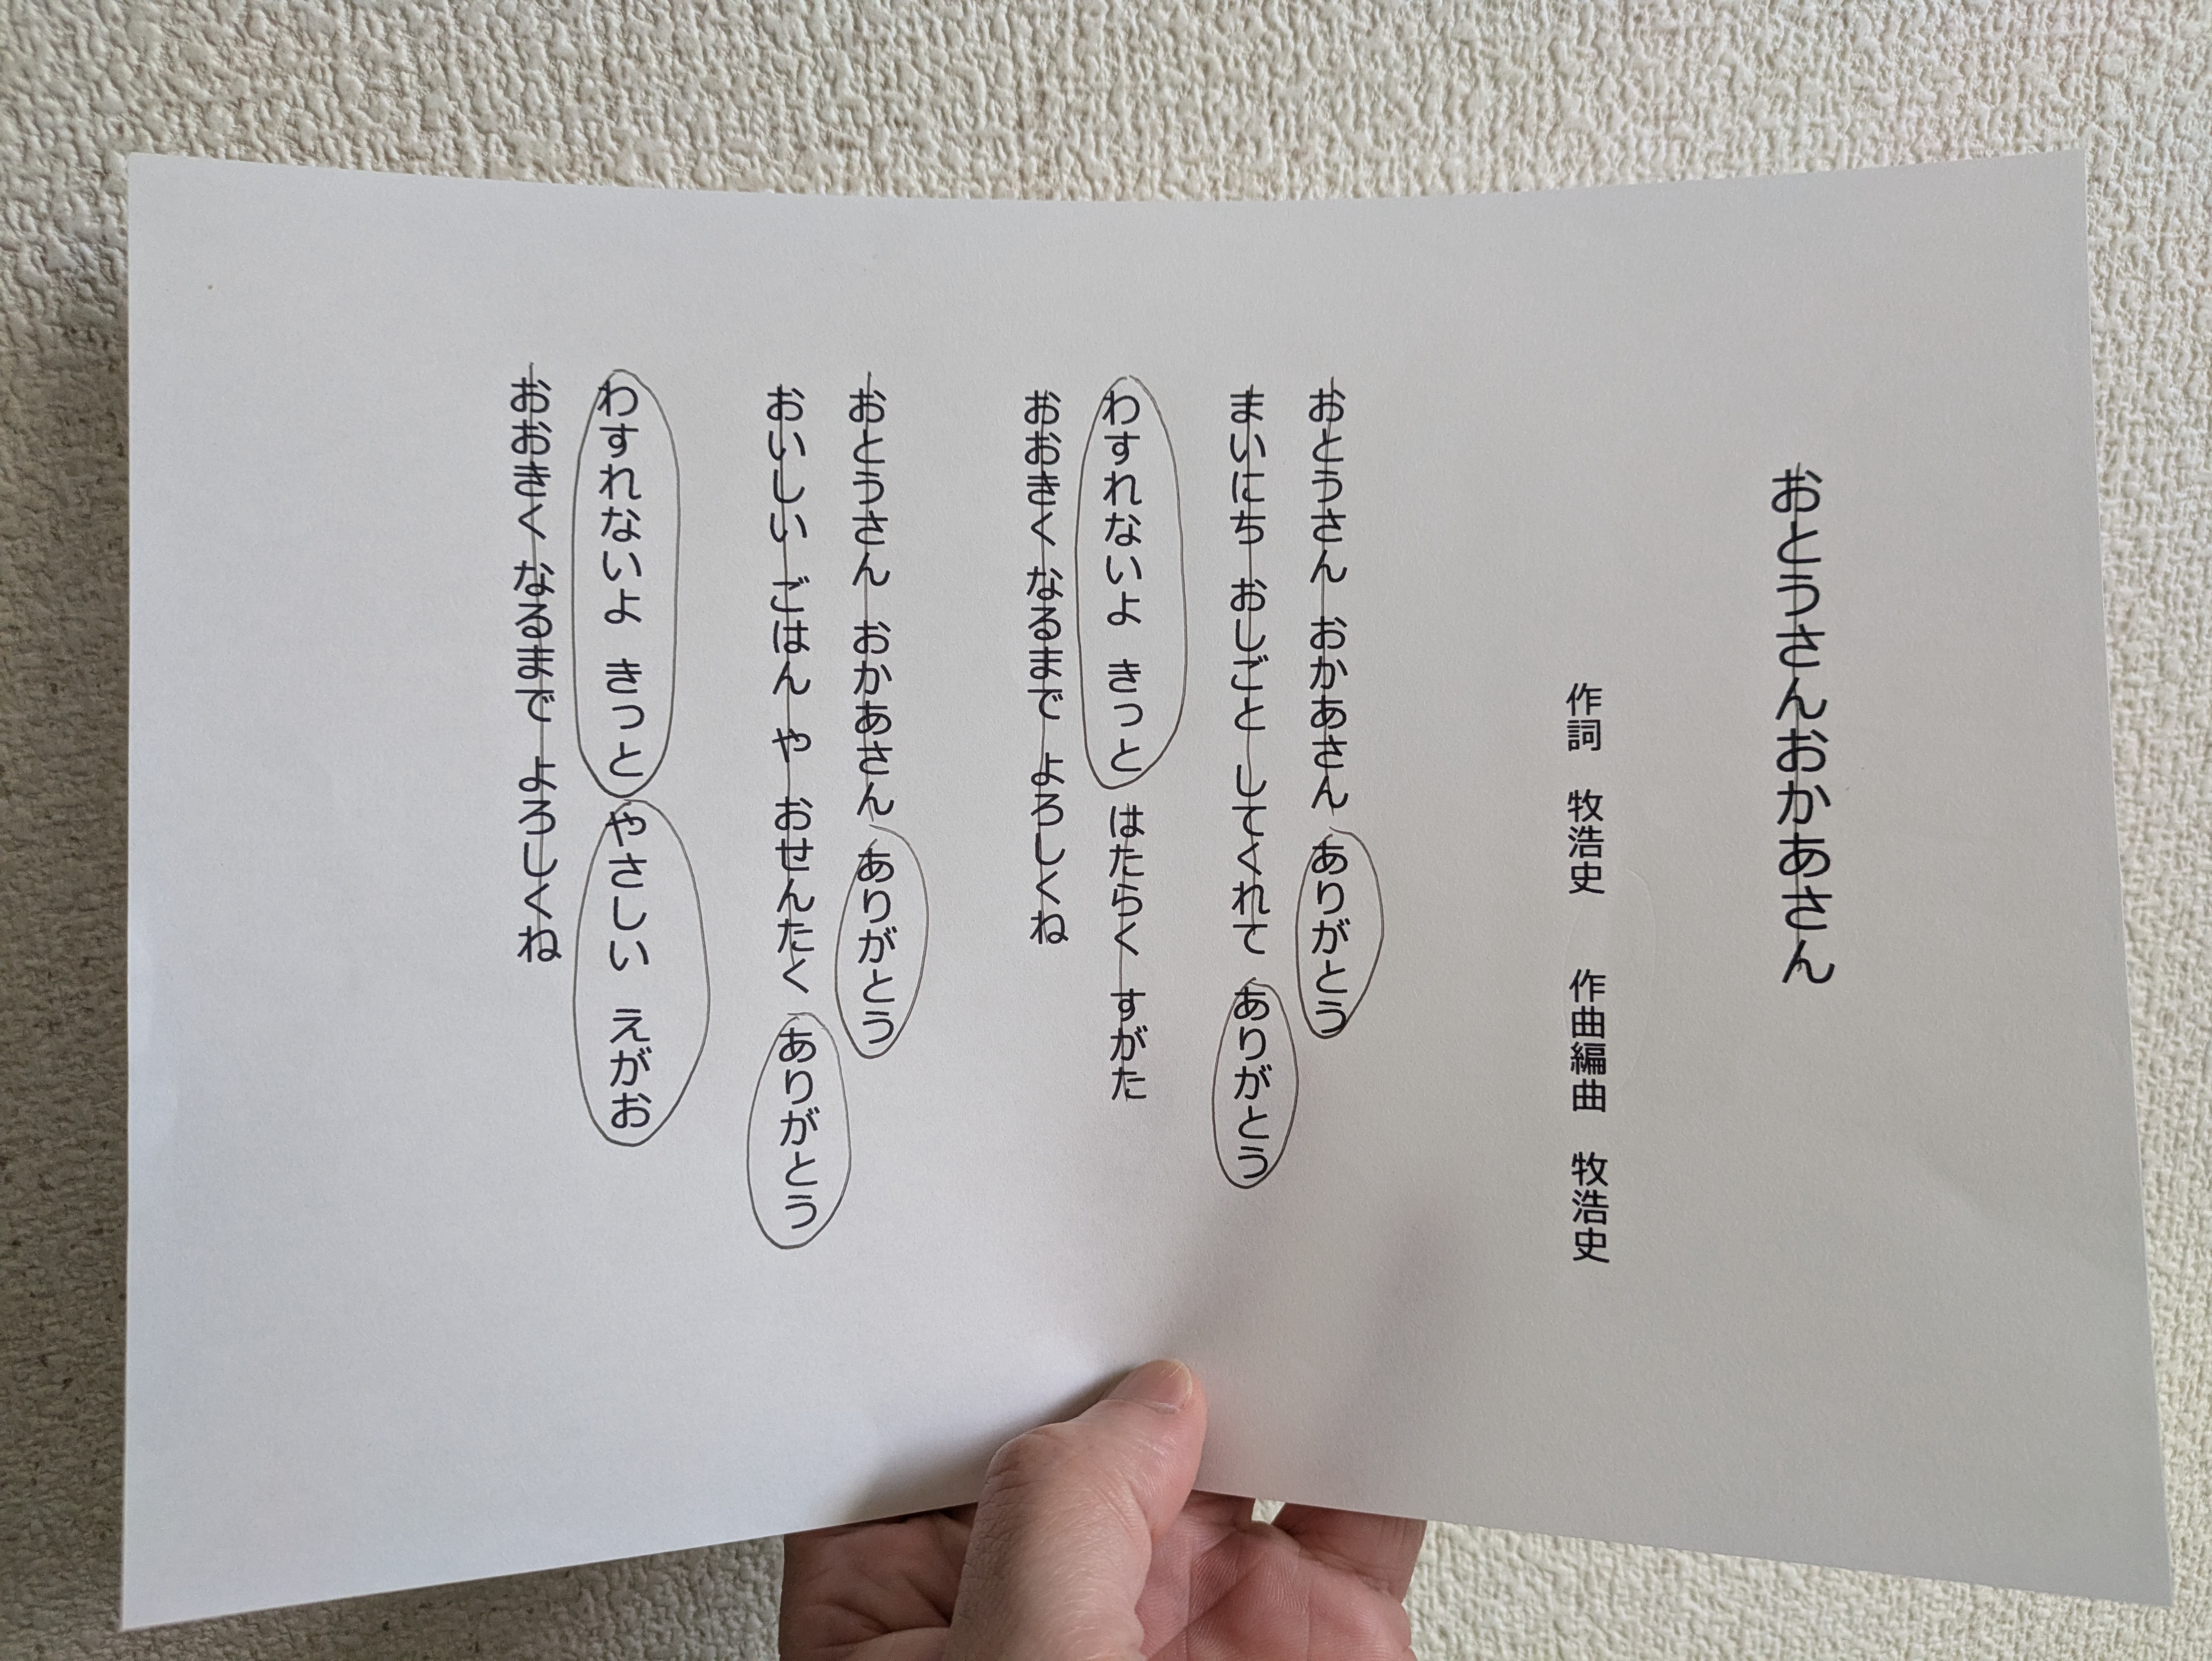 おとうさんおかあさん
作詞　牧浩史　　作曲編曲　牧浩史
おとうさん　おかあさん　ありがとう
まいにち　おしごと　してくれて　ありがとう
わすれないよ　きっと　はたらく　すがた
おおきく　なるまで　よろしくね
おとうさん　おかあさん　ありがとう
おいしい　ごはん　や　おせんたく　ありがとう
わすれないよ　きっと　やさしい　えがお
おおきく　なるまで　よろしくね